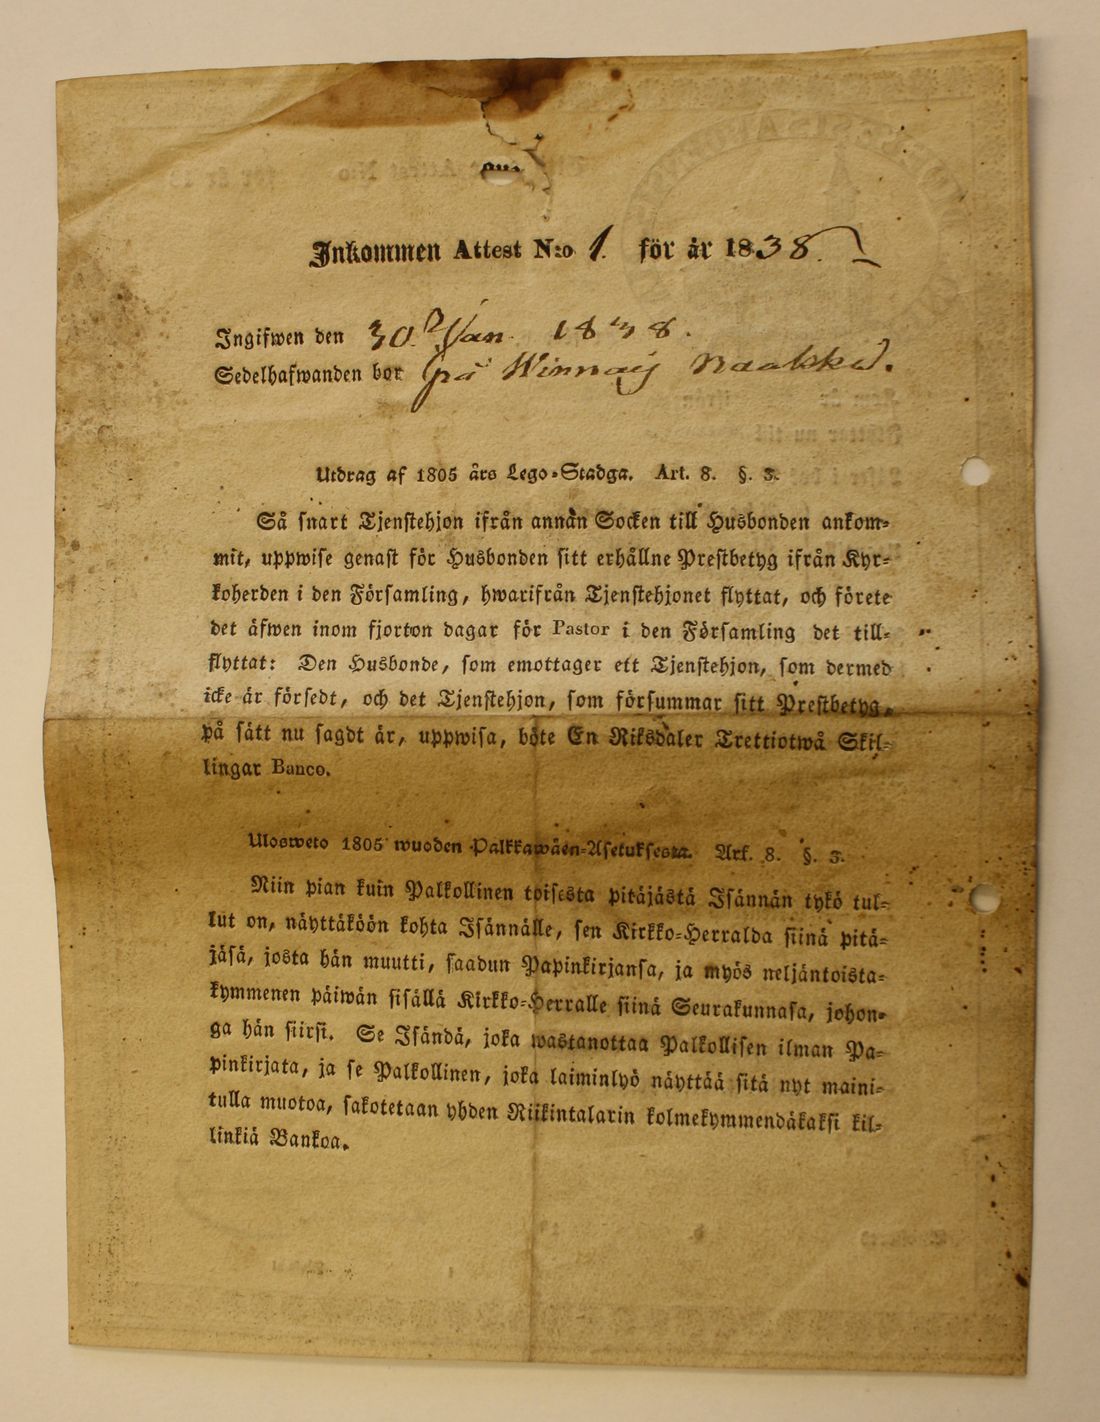 Inkommen Attest N:o 1. för år 1838.
Ingifwen den 30 Jan. 1838.
Sedelhafwanden bor på
Utdrag af 1805 års Lego-Stadga. Art. 8. §. 3.
Så snart Tjenstehjon ifrån annan Socken till Husbonden ankom-
mit, uppwise genast för Husbonden sitt erhållne Prestbetyg ifrån Kyr-
koherden i den Församling, hwarifrån Tjenstehjonet flyttat, och förete
det äfwen inom fjorton dagar för Pastor i den Församling det till-
flyttat: Den Husbonde, som emottager ett Tjenstehjon, som dermed
icke är försedt, och det Tjenstehjon, som försummar sitt Prestbetyg,
på sätt nu sagdt är, uppwisa, böte En Riksdaler Trettiotwå Skil-
lingar Banco.
Ulosweto 1805 wuoden Palkkawäen-Asetuksesta. Art. 8. §. 3.
Niin pian kuin Palkollinen toisesta pitäjästä Isännän tykö tul-
lut on, näyttäköön kohta Isännälle, sen Kirkko-Herralda siinä pitä-
jäsä, josta hän muutti, saadun Papinkirjansa, ja myös neljäntoista-
kymmenen päiwän sisällä Kirkko-Herralle siinä Seurakunnasa, johon-
ga hän siirsi. Se Isändä, joka wastanottaa Palkollisen ilman Pa-
pinkirjata, ja se Palkollinen, joka laiminlyö näyttää sitä nyt maini-
tulla muotoa, sakotetaan yhden Riikintalarin kolmekymmendäkaksi kil-
linkiä Bankoa.